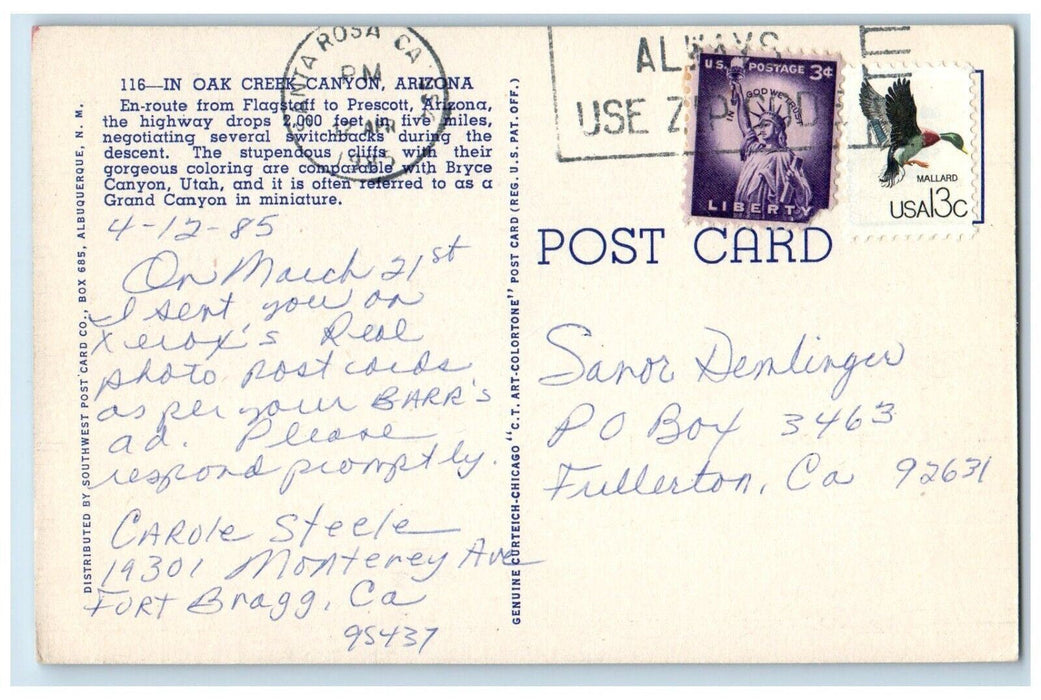 SANTA ROSA CA
PM
APR
1985
ALWAYS
USE ZIP COD
U.S. POSTAGE 3¢
IN GOD WE TRUST
LIBERTY
MALLARD
USA13c
116—IN OAK CREEK CANYON, ARIZONA
En-route from Flagstaff to Prescott, Arizona,
the highway drops 2,000 feet in five miles,
negotiating several switchbacks during the
descent. The stupendous cliffs with their
gorgeous coloring are comparable with Bryce
Canyon, Utah, and it is often referred to as a
Grand Canyon in miniature.
4-12-85
On March 21st
I sent you an
Xerox's Real
photo postcards
as per your BARR'S
ad. Please
respond promptly.
CAROle Steele
19301 Monterey Ave
FORT Bragg, Ca
95437
DISTRIBUTED BY SOUTHWEST POST CARD CO., BOX 685, ALBUQUERQUE, N. M.
GENUINE CURTEICH-CHICAGO "C.T. ART-COLORTONE" POST CARD (REG. U.S. PAT. OFF.)
POST CARD
Sanor Demlinger
PO Box 3463
Fullerton, Ca 92631